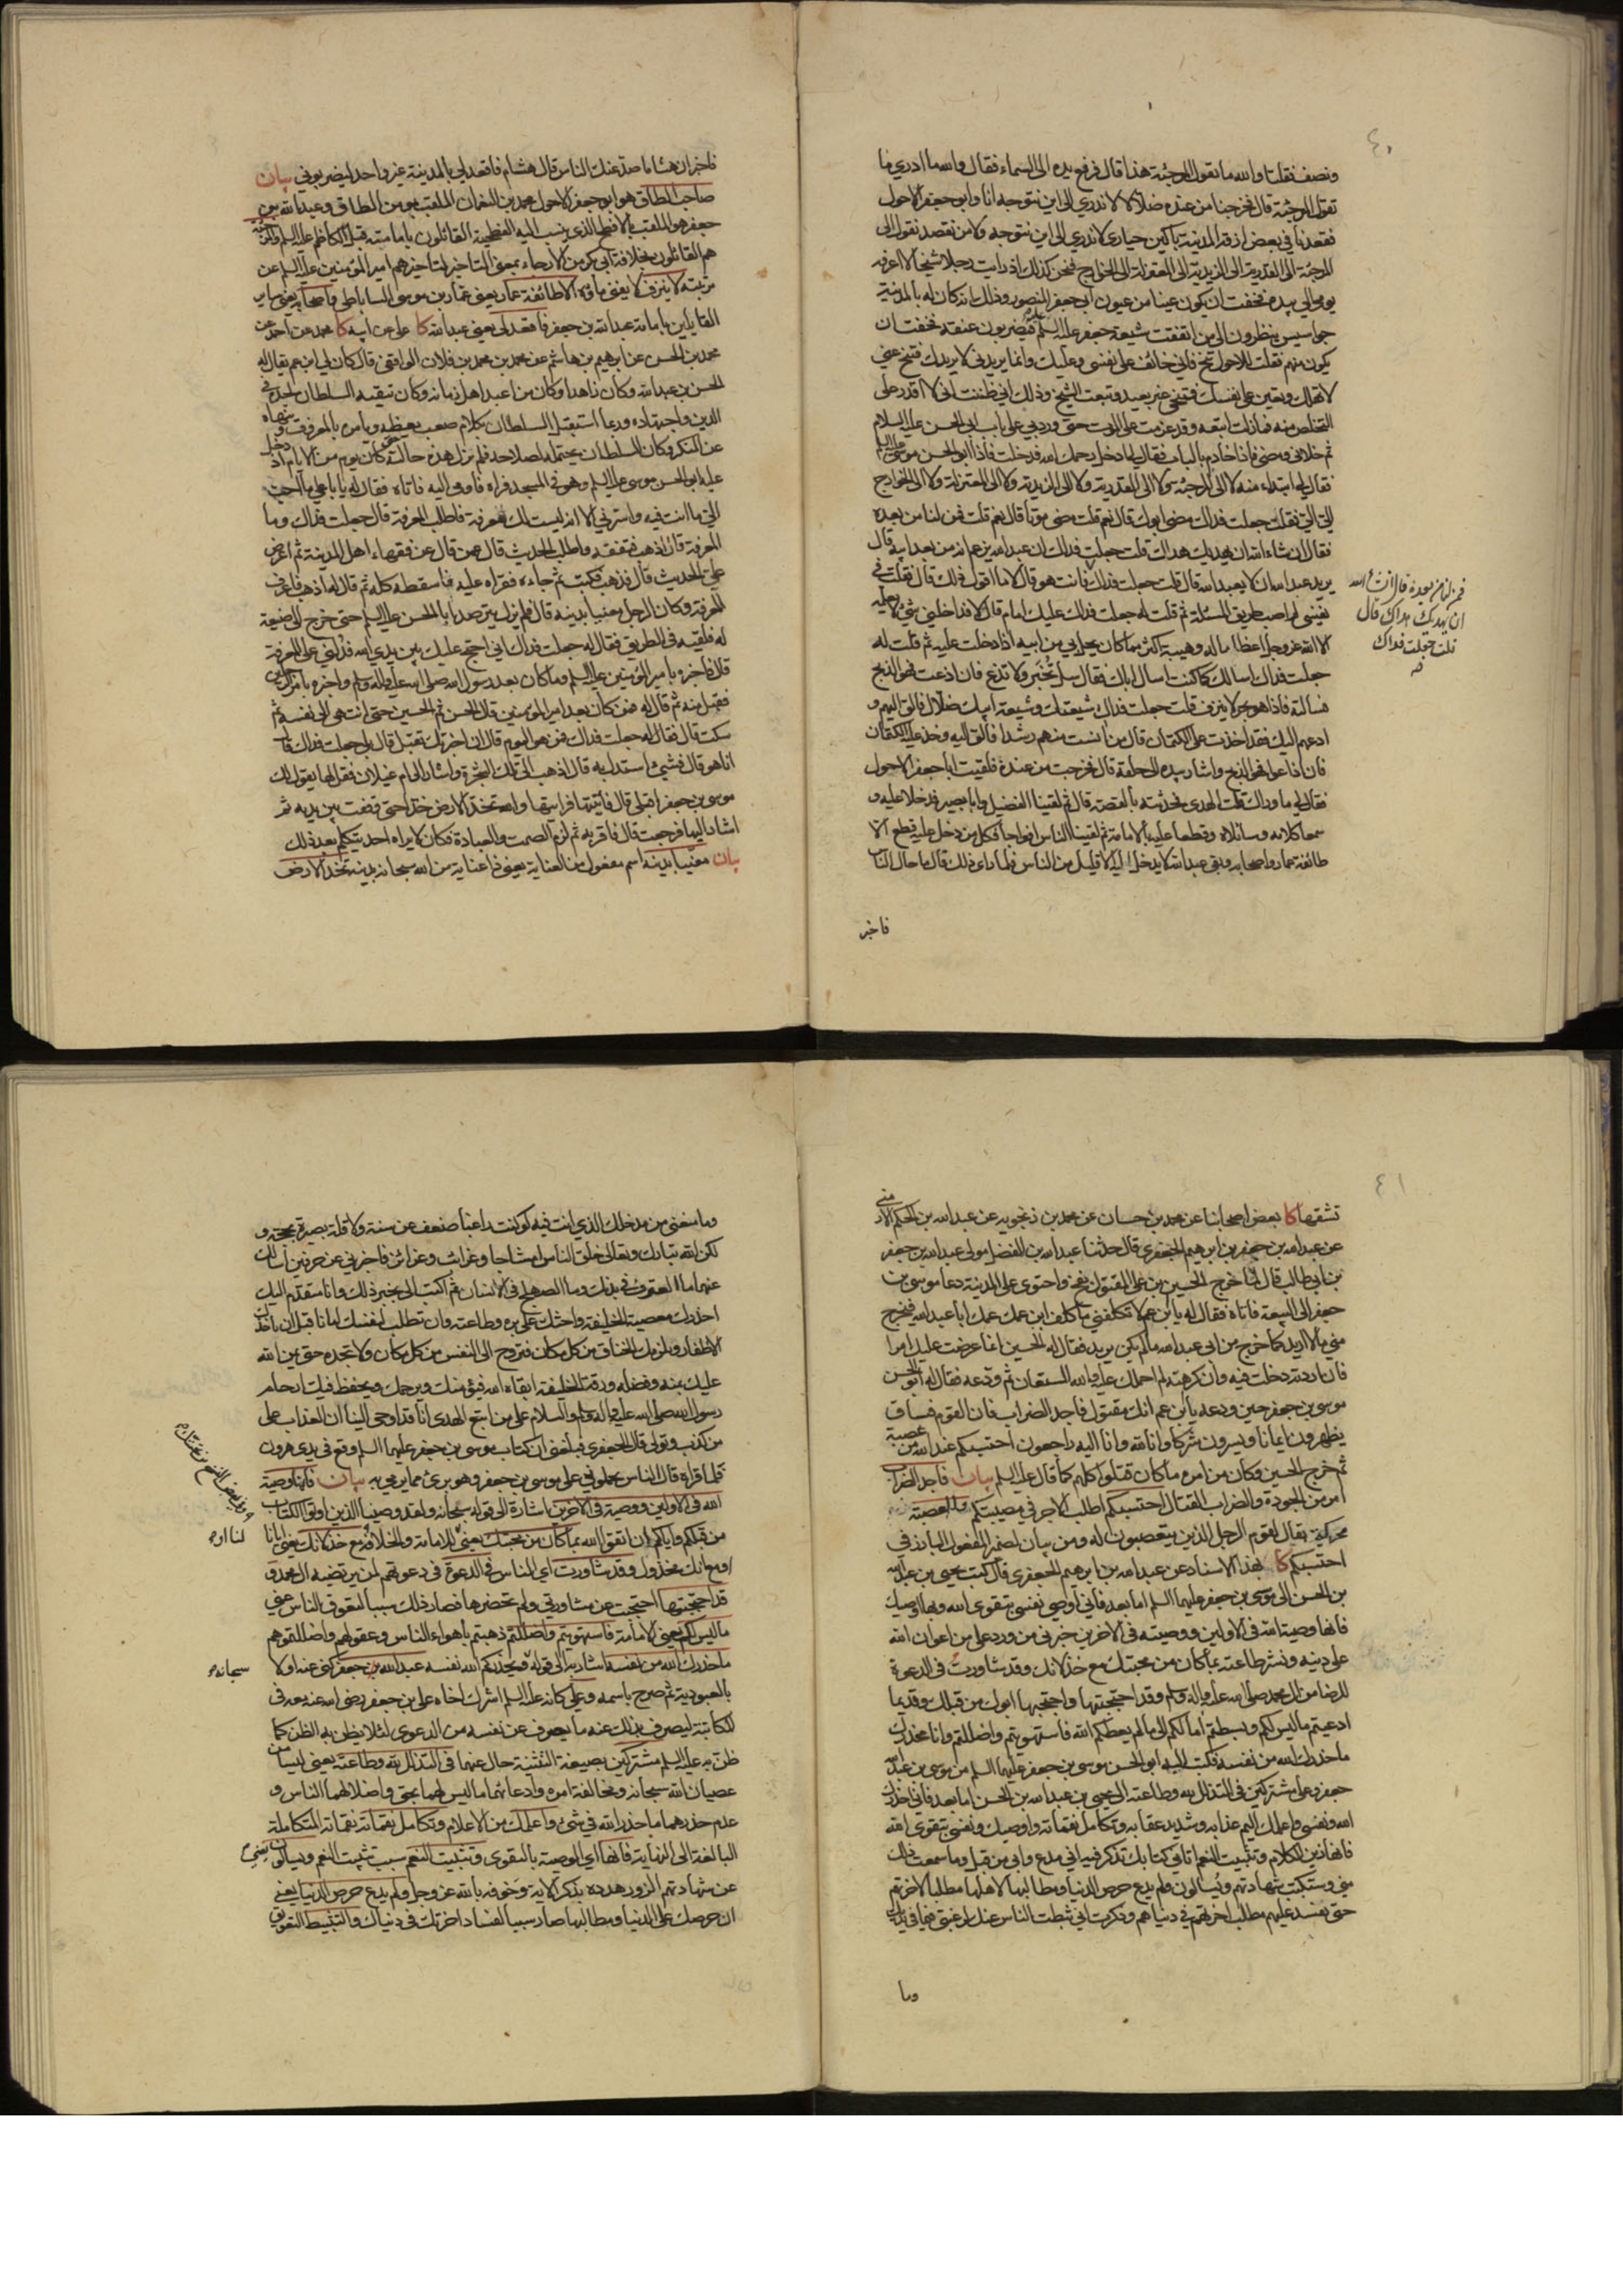 ٤٠
ونصف فقلنا والله ما تقول المرجئة هذا قال فرفع يده الى السماء فقال والله ما ادري ما
تقول المرجئة قال فخرجنا من عنده ضلالا لا ندري الى اين نتوجه انا وابو جعفر الاحول
فقعدنا في بعض ازقة المدينة باكين حيارى لا ندري الى اين نتوجه ولا من نقصد نقول الى
المرجئة الى القدرية الى الزيدية الى المعتزلة الى الخوارج فنحن كذلك اذ رايت رجلا شيخا لا اعرفه
يومي الي بيده فخفت ان يكون عينا من عيون ابي جعفر المنصور وذلك انه كان له بالمدينة
جواسيس ينظرون الى من اتفقت شيعة جعفر عليه السلم فيضربون عنقه فخفت ان
يكون منهم فقلت للاحول تنح فاني خائف على نفسي وعليك وانما يريدني لا يريدك فتنح عني
لا تهلك وتعين على نفسك فتنحى غير بعيد وتبعت الشيخ وذلك اني ظننت اني لا اقدر على
التخلص منه فمازلت اتبعه وقد عزمت على الموت حتى ورد بي على باب ابي الحسن عليه السلام
ثم خلاني ومضى فاذا خادم بالباب فقال لي ادخل رحمك الله فدخلت فاذا ابو الحسن موسى عليه السلم
فقال لي ابتداء منه لا الى المرجئة ولا الى القدرية ولا الى الزيدية ولا الى المعتزلة ولا الى الخوارج
الي الي فقلت جعلت فداك مضى ابوك قال نعم قلت مضى موتا قال نعم قلت فمن لنا من بعده
فقال ان شاء الله ان يهديك هداك قلت جعلت فداك ان عبد الله يزعم انه من بعد ابيه قال
يريد عبد الله ان لا يعبد الله قال قلت جعلت فداك فانت هو قال لا ما اقول ذلك قال فقلت في
نفسي لم اصب طريق المسئلة ثم قلت له جعلت فداك عليك امام قال لا فداخلني شئ لا يعلمه
الا الله عز وجل اعظاما له وهيبة اكثر مما كان يحل بي من ابيه اذا دخلت عليه ثم قلت له
جعلت فداك اسالك كما كنت اسال اباك فقال سل تخبر ولا تذع فان اذعت فهو الذبح
فسالته فاذا هو بحر لا ينزف قلت جعلت فداك شيعتك وشيعة ابيك ضلال فالقي اليهم و
ادعهم اليك فقد اخذت على الكتمان قال من آنست منهم رشدا فالق اليه وخذ عليه الكتمان
فان اذاعوا فهو الذبح واشار بيده الى حلقه قال فخرجت من عنده فلقيت ابا جعفر الاحول
فقال لي ما وراك قلت الهدى فحدثته بالقصة قال ثم لقينا الفضيل وابا بصير فدخلا عليه و
سمعا كلامه وسائلاه وقطعا عليه بالامامة ثم لقينا الناس افواجا فكل من دخل عليه قطع الا
طائفة عمار واصحابه وبقي عبد الله لا يدخل اليه الا قليل من الناس فلما راى ذلك قال ما حال الناس
فمن لنا من بعده قال ان شاء الله
ان يهديك هداك قال
قلت جعلت فداك
فاخبر
فاخبر ان هشاما صد عنك الناس قال هشام فاقعد لي بالمدينة غير واحد ليضربوني بيان
صاحب الطاق هو ابو جعفر الاحول محمد بن النعمان الملقب بمومن الطاق وعبد الله بن
جعفر هو الملقب بالافطح الذي ينسب اليه الفطحية القائلون بامامته قبل الكاظم عليه السلم والمرجئة
هم القائلون بخلافة ابي بكر من الارجاء بمعنى التاخير لتاخيرهم امير المؤمنين عليه السلم عن
مرتبته لا ينزف لا يفنى ماؤه الا طائفة عمار يعني عمار بن موسى الساباطي واصحابه يعني ساير
القايلين بامامة عبد الله بن جعفر فاقعد لي يعني عبد الله كا علي عن ابيه كا محمد عن احمد عن
محمد بن الحسن عن ابرهيم بن هاشم عن محمد بن محمد بن فلان الواقفي قال كان لي ابن عم يقال له
الحسن بن عبد الله وكان زاهدا وكان من اعبد اهل زمانه وكان تتقيه السلطان لجده في
الدين واجتهاده وربما استقبل السلطان بكلام صعب يعظه ويامره بالمعروف وينهاه
عن المنكر وكان السلطان يحتمله لصلاحه فلم يزل هذه حالته حتى كان يوم من الايام اذ دخل
عليه ابو الحسن موسى عليه السلم وهو في المسجد فراه فاومى اليه فاتاه فقال له يا با علي ما احب
الي ما انت فيه واسرني الا انه ليست لك معرفة فاطلب المعرفة قال جعلت فداك وما
المعرفة قال اذهب فتفقه واطلب الحديث قال عمن قال عن فقهاء اهل المدينة ثم اعرض
علي الحديث قال فذهب فكتب ثم جاءه فقراه عليه فاسقطه كله ثم قال له اذهب فاعرف
المعرفة وكان الرجل معنيا بدينه قال فلم يزل يترصد ابا الحسن عليه السلم حتى خرج الى ضيعة
له فلقيه في الطريق فقال له جعلت فداك اني احتج عليك بين يدي الله فدلني على المعرفة
قال فاخبره بامير المؤمنين عليه السلم وما كان بعد رسول الله صلى الله عليه واله وسلم واخبره بامر الرجلين
فقبل منه ثم قال له فمن كان بعد امير المومنين قال الحسن ثم الحسين حتى انتهى الى نفسه ثم
سكت قال فقال له جعلت فداك فمن هو اليوم قال ان اخبرتك تقبل قال بلى جعلت فداك قال
انا هو قال فشيئ استدل به قال اذهب الى تلك الشجرة واشار الى ام غيلان فقل لها يقول لك
موسى بن جعفر اقبلي قال فاتيتها فرايتها والله تخد الارض خدا حتى وقفت بين يديه ثم
اشار اليها فرجعت قال فاقر به ثم لزم الصمت والعبادة فكان لا يراه احد يتكلم بعد ذلك
بيان معنيا بدينه اسم مفعول من العناية يعني ذا عناية من الله سبحانه بدينه تخد الارض
٤١
تشقها كا بعض اصحابنا عن محمد بن حسان عن محمد بن زنجويه عن عبد الله بن الحكم الارمني
عن عبد الله بن جعفر بن ابرهيم الجعفري قال حدثنا عبد الله بن الفضل مولى عبد الله بن جعفر
بن ابي طالب قال لما خرج الحسين بن علي المقتول بفخ واحتوى على المدينة دعا موسى بن
جعفر الى البيعة فاتاه فقال له يا ابن عم لا تكلفني ما كلف ابن عمك عمك ابا عبد الله فيخرج
مني ما لا اريد كما خرج من ابي عبد الله ما لم يكن يريد فقال له الحسين انما عرضت عليك امرا
فان اردته دخلت فيه وان كرهته لم احملك عليه والله المستعان ثم ودعه فقال له ابو الحسن
موسى بن جعفر حين ودعه يا ابن عم انك مقتول فاجد الضراب فان القوم فساق
يظهرون ايمانا ويسرون شركا وانا لله وانا اليه راجعون احتسبكم عند الله من عصبة
ثم خرج الحسين وكان من امره ما كان قتلوا كلهم كما قال عليه السلم بيان فاجد الضراب
امر من الجودة والضراب القتال احتسبكم اطلب الاجر في مصيبتكم والعصبة
محركة يقال لقوم الرجل الذين يتعصبون له ومن بيان لضمير المفعول البارز في
احتسبكم كا بهذا الاسناد عن عبد الله بن ابرهيم الجعفري قال كتب يحيى بن عبد الله
بن الحسن الى موسى بن جعفر عليهما السلم اما بعد فاني اوصي نفسي بتقوى الله وبها اوصيك
فانها وصية الله في الاولين ووصيته في الاخرين خبرني من ورد علي من اعوان الله
على دينه ونشر طاعته بما كان من محبتك مع خذلانك وقد شاورت في الدعوة
للرضا من ال محمد صلى الله عليه واله وسلم وقد احتجبتها واحتجبها ابوك من قبلك وقديما
ادعيتم ما ليس لكم وبسطتم آمالكم الى ما لم يعطكم الله فاستهويتم واضللتم وانا محذرك
ما حذرك الله من نفسه فكتب اليه ابو الحسن موسى بن جعفر عليهما السلم من موسى بن عبد الله
جعفر وعلي مشتركين في التذلل لله وطاعته الى يحيى بن عبد الله بن الحسن اما بعد فاني احذرك
الله ونفسي واعلمك اليم عذابه وشديد عقابه وتكامل نقماته واوصيك ونفسي بتقوى الله
فانها زين الكلام وتثبيت النعم اتاني كتابك تذكر فيه اني مدع وابي من قبل وما سمعت ذلك
مني وستكتب شهادتهم ويسالون ولم يدع حرص الدنيا ومطالبها لاهلها مطلبا لاخرتهم
حتى يفسد عليهم مطلب اخرتهم في دنياهم وذكرت اني ثبطت الناس عنك لرغبتي فيما في يديك
وما
وما منعني من مدخلك الذي انت فيه لو كنت راغبا ضعف عن سنة ولا قلة بصيرة بحجة و
لكن الله تبارك وتعالى خلق الناس امشاجا وغرائب وغرائز فاخبرني عن حرفين اسالك
عنهما ما العترف في بدنك وما الصهلج في الانسان ثم اكتب الي بخبر ذلك وانا متقدم اليك
احذرك معصية الخليفة واحثك على بره وطاعته وان تطلب لنفسك امانا قبل ان تاخذك
الاظفار ويلزمك الخناق من كل مكان فتروح الى النفس من كل مكان ولا تجده حتى يمن الله
عليك بمنه وفضله ورقة الخليفة ابقاه الله فيؤمنك ويرحمك ويحفظ فيك ارحام
رسول الله صلى الله عليه واله وسلم والسلام على من اتبع الهدى انا قد اوحي الينا ان العذاب على
من كذب وتولى قال الجعفري فبلغني ان كتاب موسى بن جعفر عليهما السلم وقع في يدي هرون
فلما قراه قال الناس يحملوني على موسى بن جعفر وهو برئ مما يرمى به بيان فانها وصية
الله في الاولين ووصيته في الاخرين اشارة الى قوله سبحانه ولقد وصينا الذين اوتوا الكتاب
من قبلكم واياكم ان اتقوا الله بما كان من محبتك يعني للامامة والخلافة مع خذلانك يعني ايانا
او مع انك مخذول وقد شاورت اي الناس في الدعوة في دعوتهم لمن يرتضيه ال محمد و
قد احتجبتها احتجبت عن مشاورتي ولم تحضرها فصار ذلك سببا لتفرق الناس عني
ما ليس لكم يعني الامامة فاستهويتم واضللتم ذهبتم باهواء الناس وعقولهم واضللتموهم
ما حذرك الله من نفسه اشار به الى قوله ويحذركم الله نفسه عبد الله بن جعفر كنى عنه اولا
بالعبودية ثم صرح باسمه وعلي كانه عليه السلم اشرك اخاه علي بن جعفر رضي الله عنه معه في
المكاتبة ليصرف بذلك عنه ما يصرف عن نفسه من الدعوى لئلا يظن به الظن كما
ظن به عليه السلم مشتركين بصيغة التثنية حال عنهما في التذلل لله وطاعته يعني ليسا من
عصيان الله سبحانه ومخالفة امره وادعائهما ما ليس لهما بحق واضلالهما الناس و
عدم حذرهما ما حذر الله في شئ واعلمك من الاعلام وتكامل نقماته نقماته المتكاملة
البالغة الى النهاية فانها اي الوصية بالتقوى وتثبيت النعم سبب تثبت النعم ويسالون يعني
عن شهادتهم الزور هدده بذكر الاية وخوفه بالله عز وجل ولم يدع حرص الدنيا يعني
ان حرصك على الدنيا ومطالبها صار سببا لفساد اخرتك في دنياك والتثبيط التعويق
سبحانه